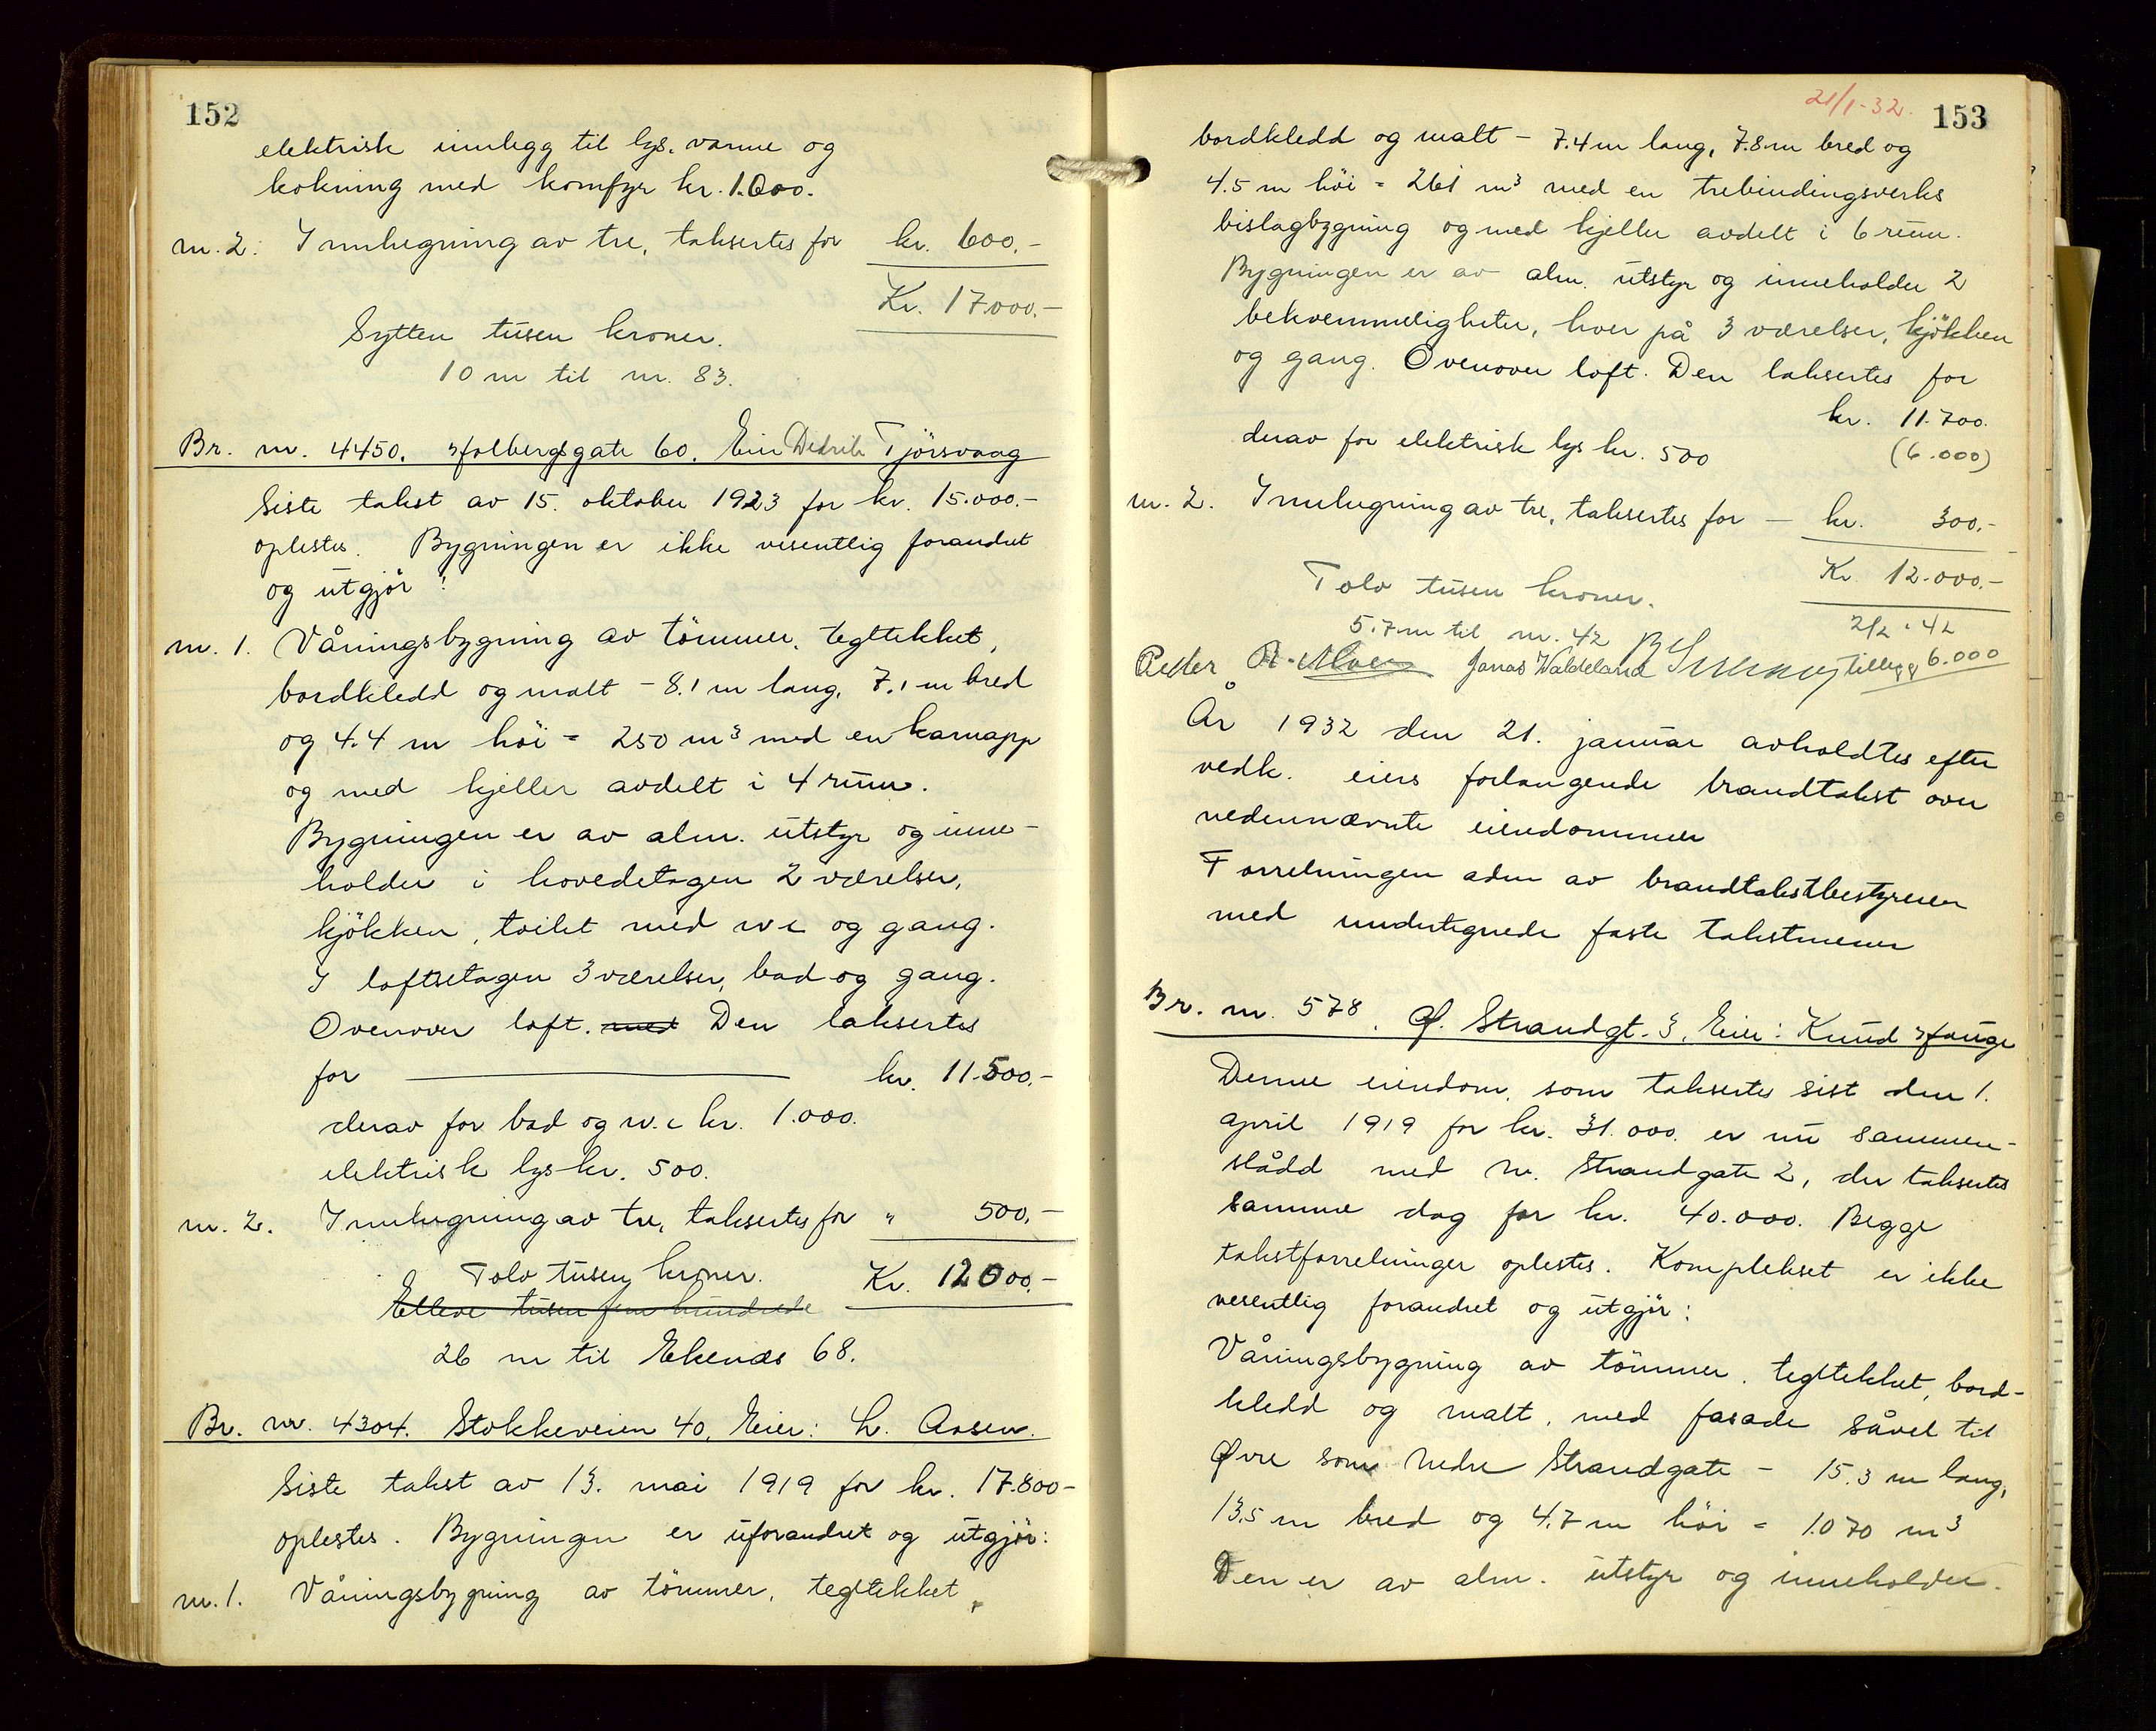 152
elektrisk innlegg til lys, varme og
kokning med komfyr kr. 1.000.
nr. 2. Innhegning av tre, taksertes for kr. 600.-
Kr. 17000.-
Sytten tusen kroner.
10 m til nr. 83.
Br. nr. 4450. Holbergsgate 60. Eier Didrik Tjörsvaag
Siste takst av 15. oktober 1923 for kr. 15.000.-
oplestes. Bygningen er ikke vesentlig forandret
og utgjör:
nr. 1. Våningsbygning av tömmer, tegltekket,
bordkledd og malt - 8.1 m lang, 7.1 m bred
og 4.4 m höi = 250 m³ med en karnapp
og med kjeller avdelt i 4 rum.
Bygningen er av alm. utstyr og inne-
holder i hovedetagen 2 værelser,
kjökken, toilet med wc og gang.
I loftsetagen 3 værelser, bad og gang.
Ovenover loft. med Den taksertes
for kr. 11.500.-
derav for bad og w.c kr. 1.000.
elektrisk lys kr. 500.
nr. 2. Innhegning av tre, taksertes for " 500.-
Tolv tusen kroner. Kr. 12000.-
Elleve tusen fem hundrede
26 m til Ekenæs 68.
Br. nr. 4304. Stokkeveien 40, Eier: L. Aasen.
Siste takst av 13. mai 1919 for kr. 17.800-
oplestes. Bygningen er uforandret og utgjör:
nr. 1. Våningsbygning av tömmer, tegltekket,
21/1-32. 153
bordkledd og malt - 7.4 m lang, 7.8 m bred og
4.5 m höi = 261 m³ med en trebindingsverks
bislagbygning og med kjeller avdelt i 6 rum.
Bygningen er av alm. utstyr og inneholder 2
bekvemmeligheter, hver på 3 værelser, kjökken
og gang. Ovenover loft. Den taksertes for
kr. 11.700.
derav for elektrisk lys kr. 500 (6.000)
nr. 2. Innhegning av tre, taksertes for - kr. 300.-
Kr. 12.000.-
Tolv tusen kroner.
5.7 m til nr. 42 2/2-42
Peder Jonas Waldeland tillegg 6.000
År 1932 den 21. januar avholdtes efter
vedk. eiers forlangende brandtakst over
nedennævnte eiendommer
Forretningen adm av brandtakstbestyreren
med undertegnede faste takstmenn
Br. nr. 578. Ø. Strandgt. 3. Eier: Knud Hauge
Denne eiendom, som taksertes sist den 1.
april 1919 for kr. 31.000. er nu sammen-
slådd med N. Strandgate 2, der taksertes
samme dag for kr. 40.000. Begge
takstforretninger oplestes. Komplekset er ikke
vesentlig forandret og utgjör:
Våningsbygning av tömmer, tegltekket, bord-
kledd og malt, med fasade såvel til
Øvre som Nedre Strandgate - 15.3 m lang,
13.5 m bred og 4.7 m höi = 1.070 m³
Den er av alm. utstyr og inneholder.